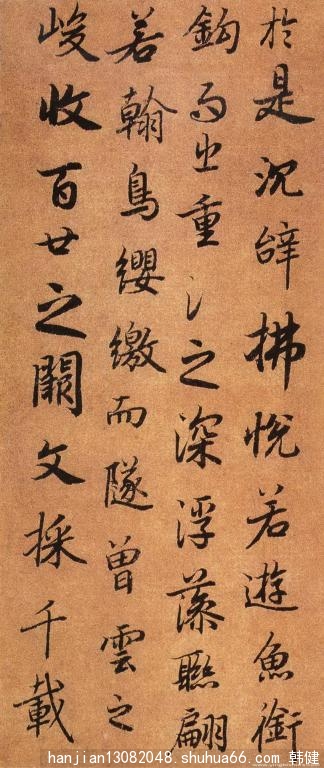 於是沈辞拂悅若遊魚銜
鈎而出重之深浮藻聯翩
若翰鳥纓繳而墜曾雲之
峻收百世之闕文採千載
hanjian13082048. shuhua66. com. 韩健